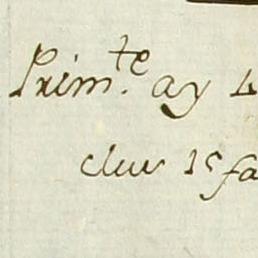 Prim.te ay 4
clus 15 fa